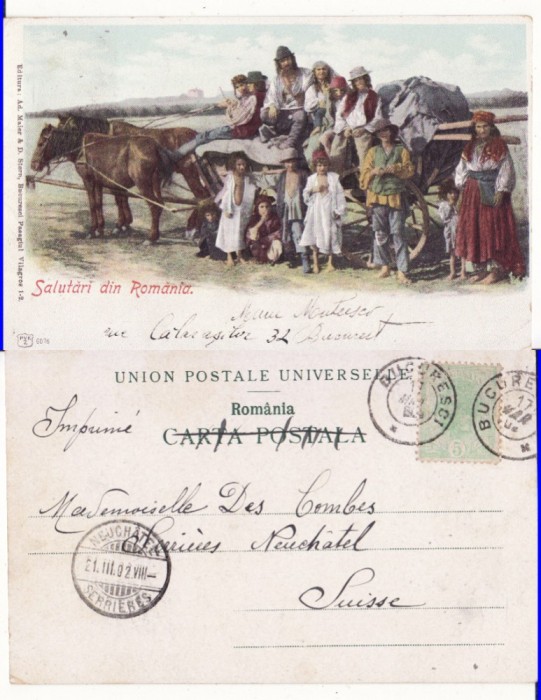 Editura: Ad. Maier & D. Stern, Bucuresci Pasagiul Vilagros 1-3.
Salutări din România.
rue Călărașilor 32 Bucarest
UNION POSTALE UNIVERSELLE
România
CARTA POSTALA
Imprimé
BUCURESCI
17 MAR
BUCURESCI
17 MAR
Mademoiselle Des Combes
Serrières Neuchâtel
Suisse
NEUCHÂTEL
21.III.02.VIII—
SERRIÈRES
5